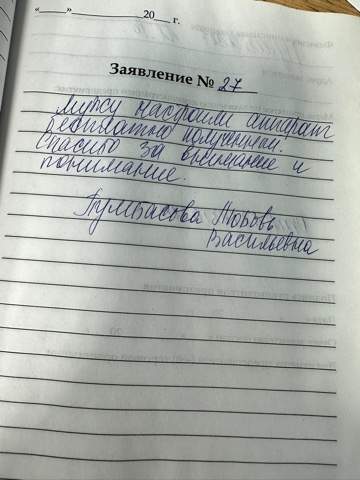 «____»____________20___ г.
Заявление № 27
настроили аппарат
бесплатно полученный.
Спасибо за внимание и
понимание.
Любовь
Васильевна